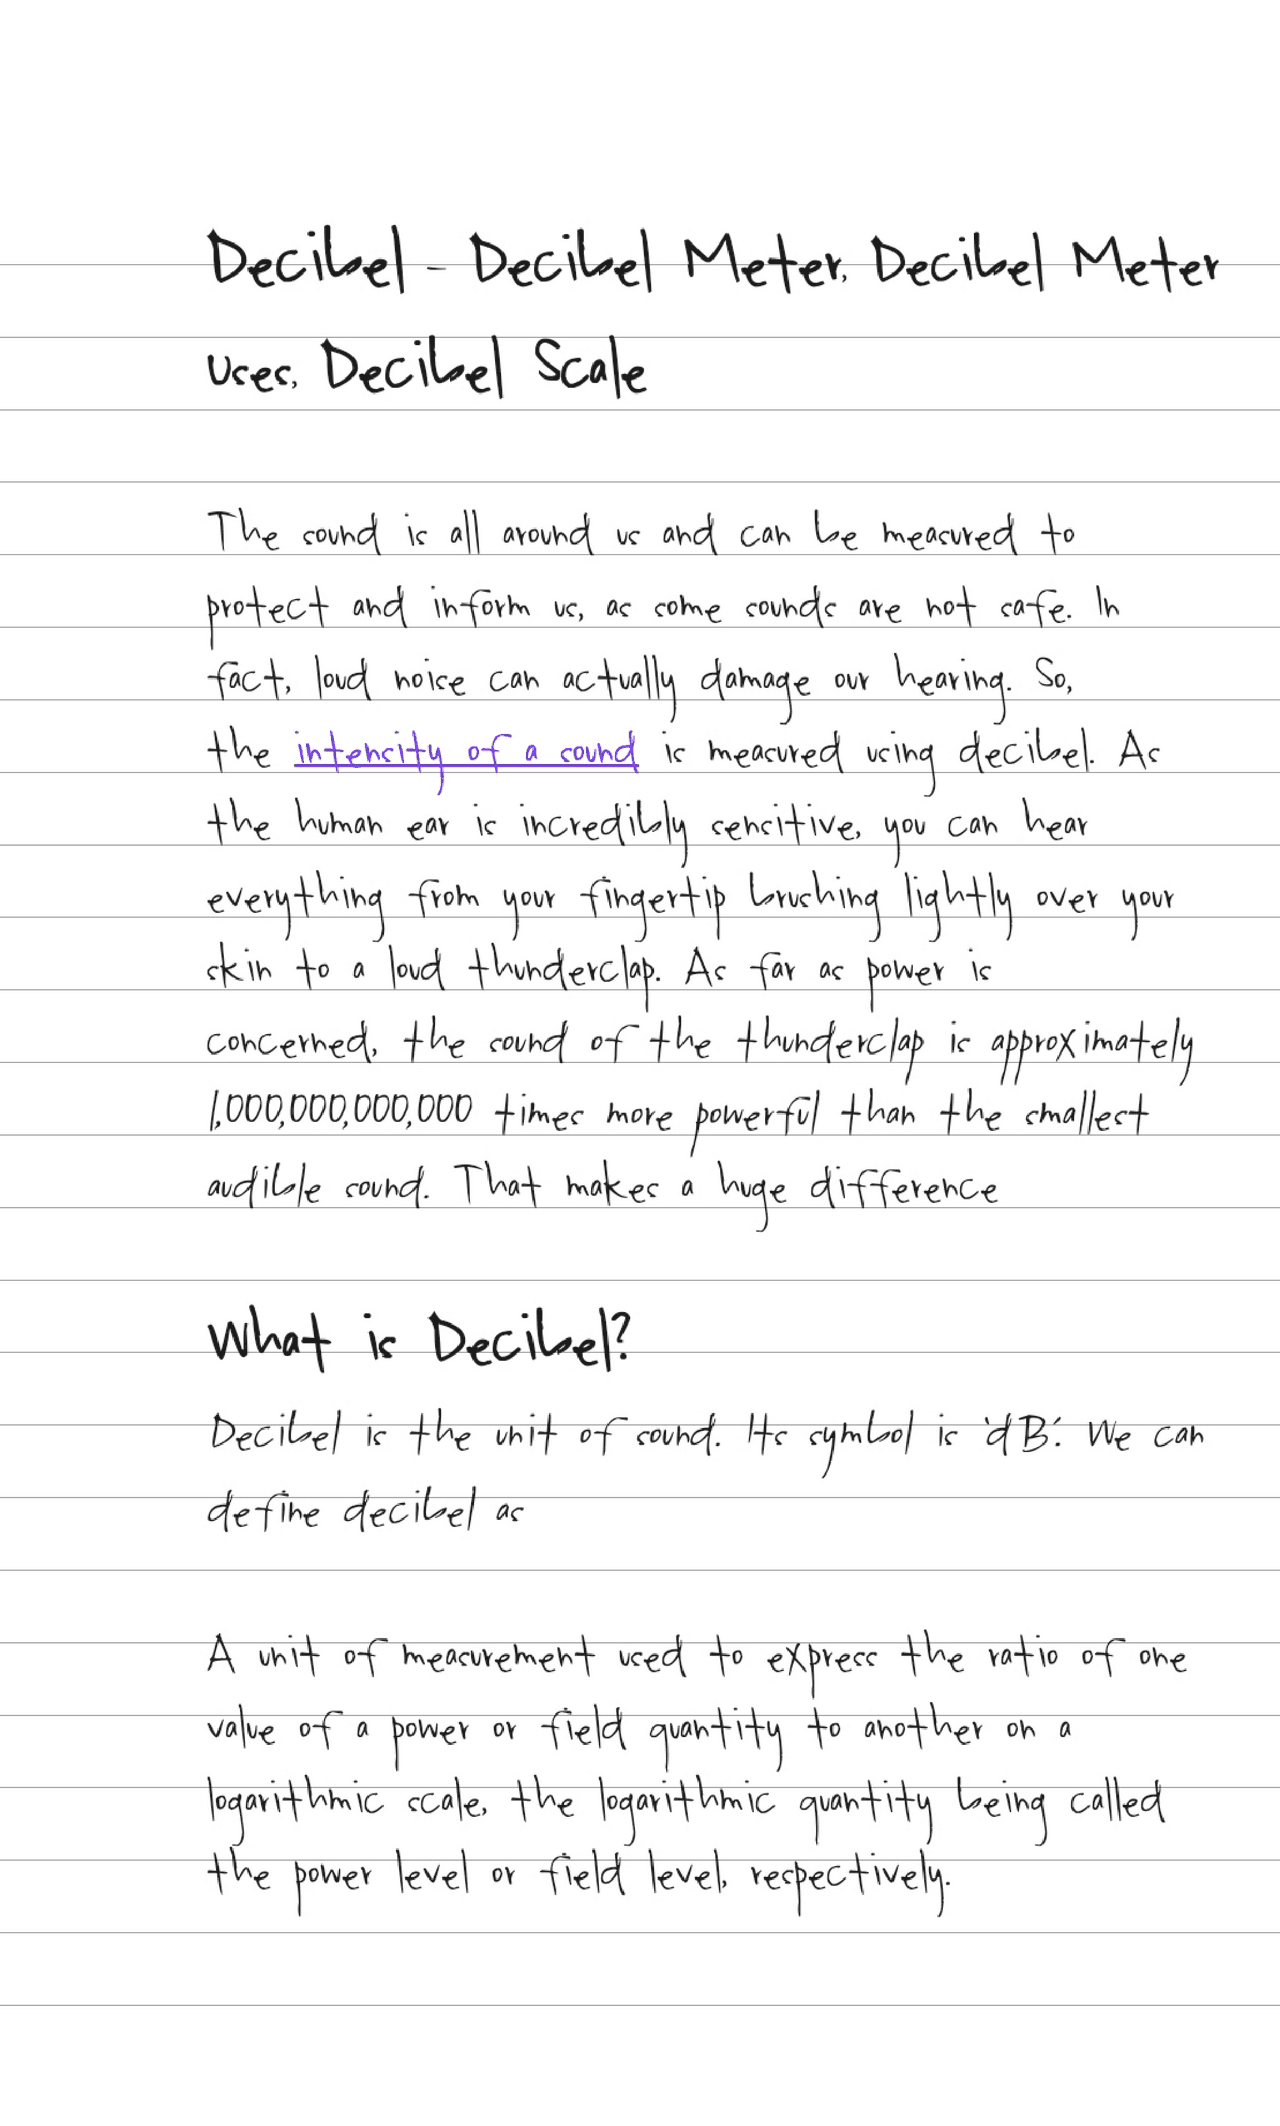 Decibel - Decibel Meter, Decibel Meter
uses, Decibel Scale
The sound is all around us and can be measured to
protect and inform us, as some sounds are not safe. In
fact, loud noise can actually damage our hearing. So,
the intensity of a sound is measured using decibel. As
the human ear is incredibly sensitive, you can hear
everything from your fingertip brushing lightly over your
skin to a loud thunderclap. As far as power is
concerned, the sound of the thunderclap is approximately
1,000,000,000,000 times more powerful than the smallest
audible sound. That makes a huge difference
What is Decibel?
Decibel is the unit of sound. Its symbol is 'dB'. We can
define decibel as
A unit of measurement used to express the ratio of one
value of a power or field quantity to another on a
logarithmic scale, the logarithmic quantity being called
the power level or field level, respectively.